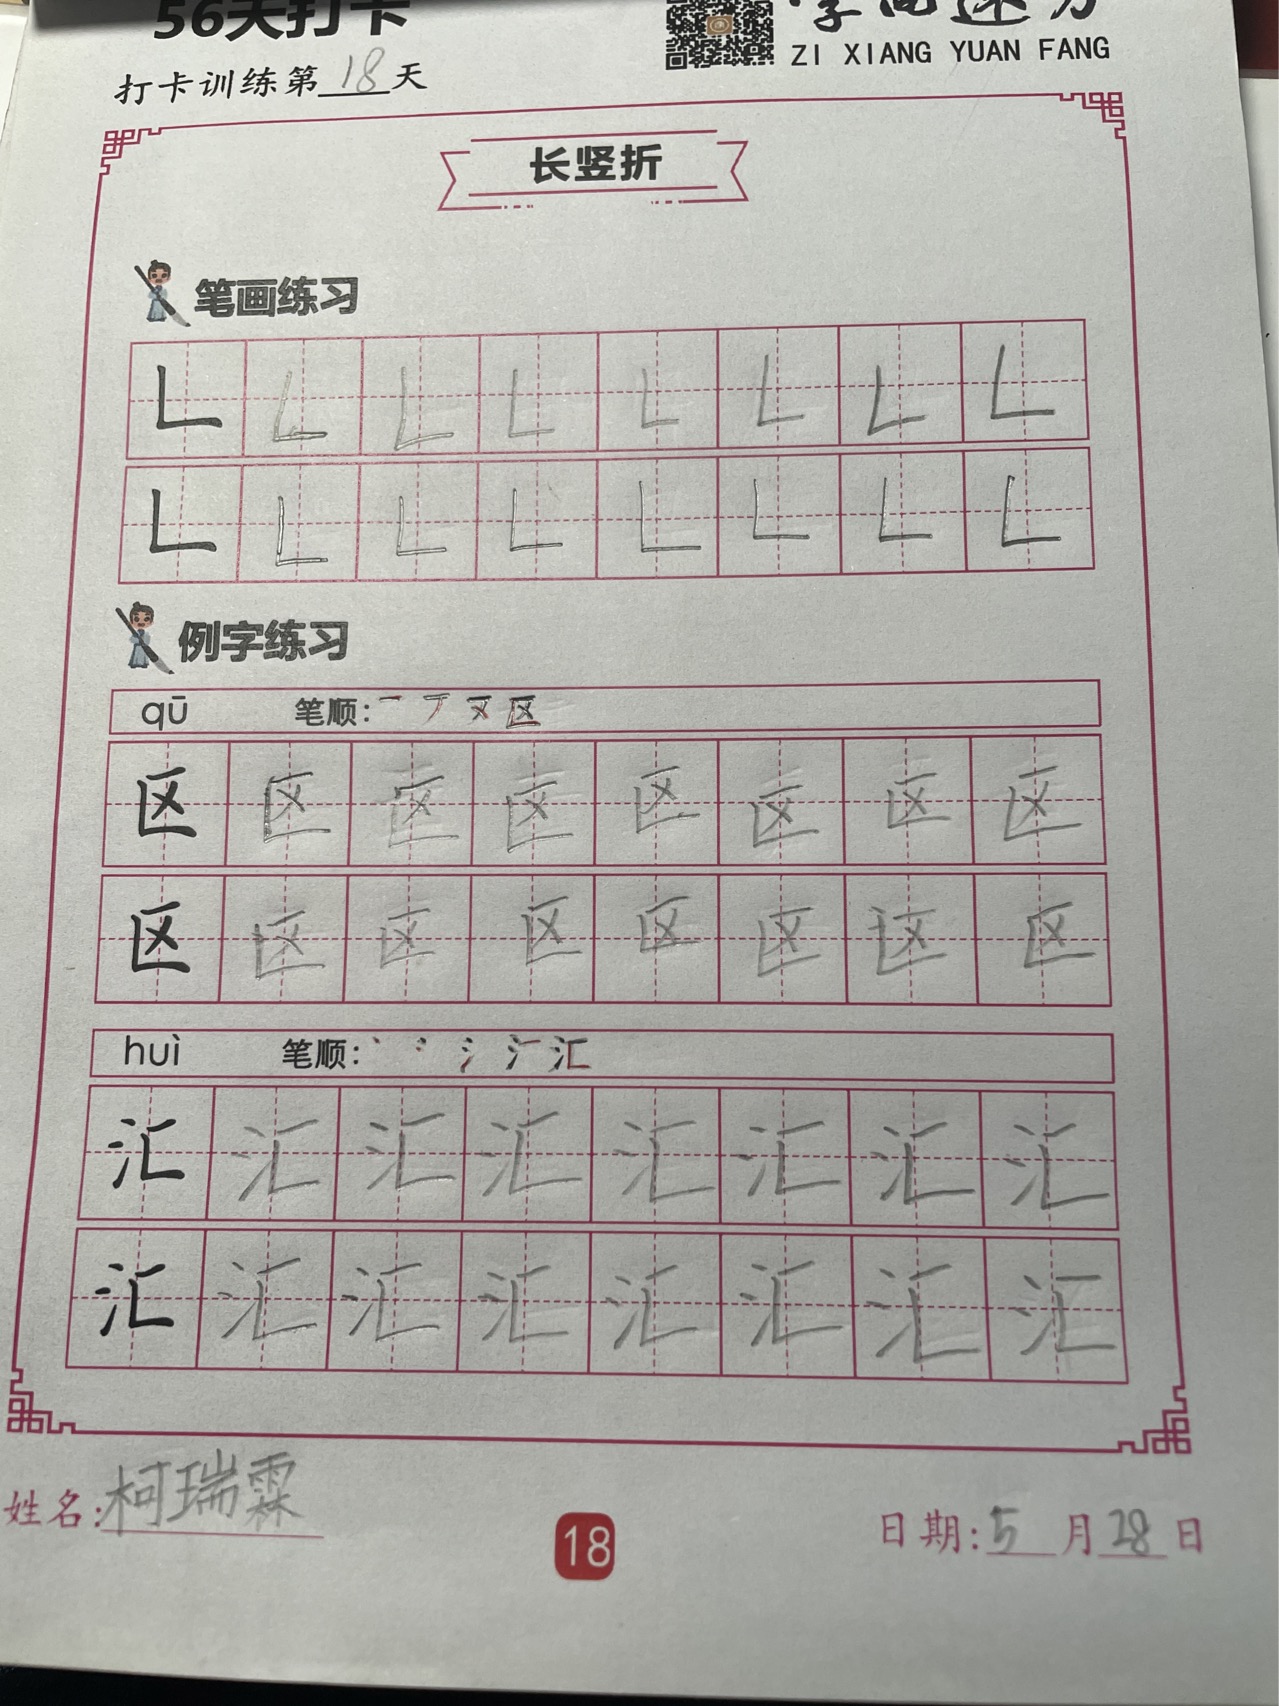 56天打卡
ZI XIANG YUAN FANG
打卡训练第18天
长竖折
笔画练习
例字练习
qū 笔顺:一 区
区 区 区 区 区 区 区 区
区 区 区 区 区 区 区 区
huì 笔顺: 汇
汇 汇 汇 汇 汇 汇 汇 汇
汇 汇 汇 汇 汇 汇 汇 汇
姓名:柯瑞霖
18
日期:5月28日